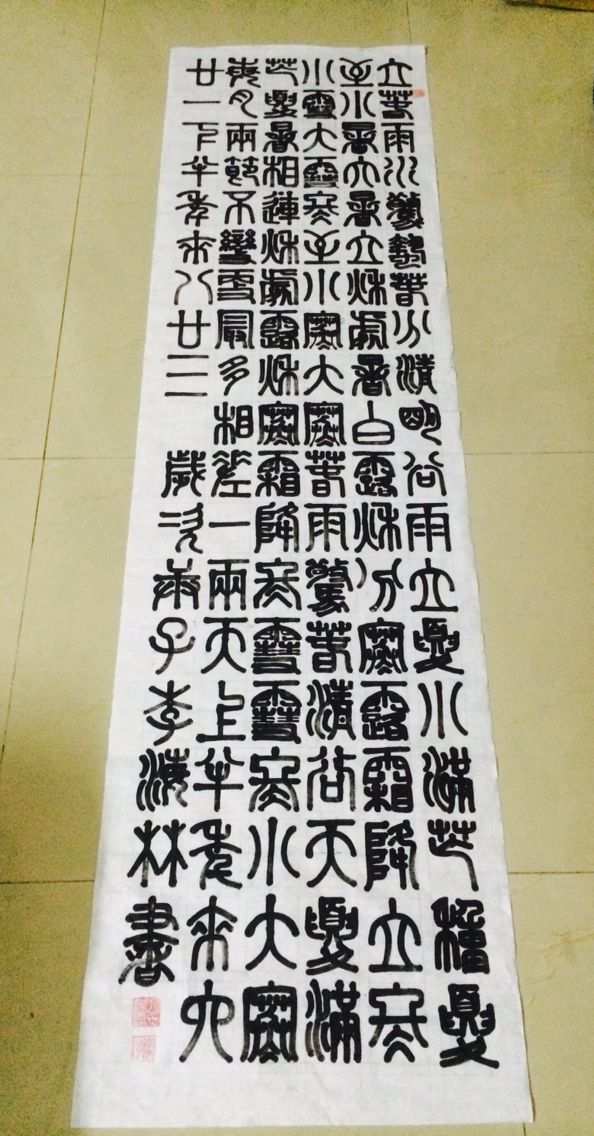 立春雨水驚蟄春分清明谷雨立夏小滿芒種夏
至小暑大暑立秋處暑白露秋分寒露霜降立冬
小雪大雪冬至小寒大寒春雨驚春清谷天夏滿
芒夏暑相連秋處露秋寒霜降冬雪雪冬小大寒
每月兩節不變更最多相差一兩天上半年來六
廿一下半年來八廿三 歲次庚子李海林書